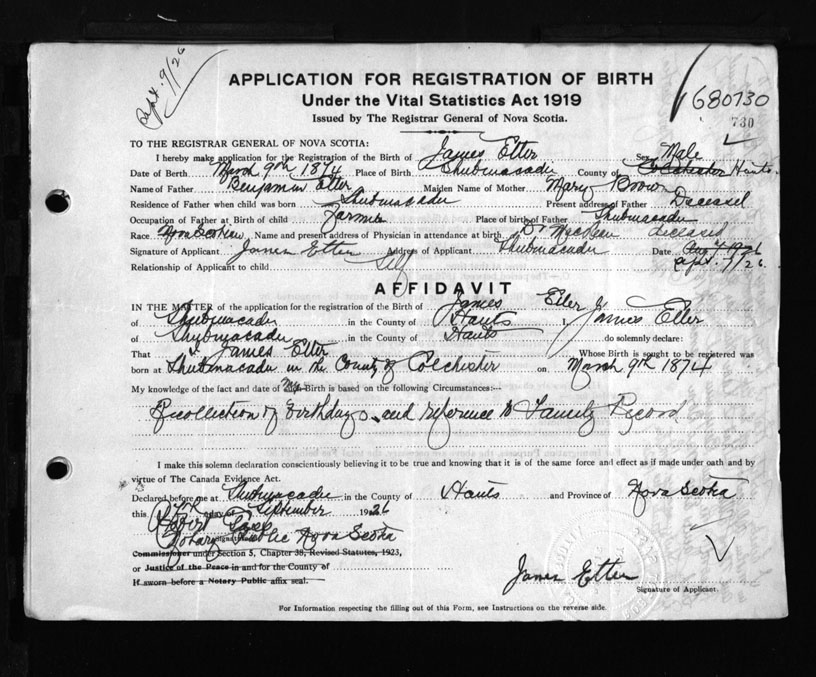 Sept. 9/26
APPLICATION FOR REGISTRATION OF BIRTH
Under the Vital Statistics Act 1919
Issued by The Registrar General of Nova Scotia.
680730
730
TO THE REGISTRAR GENERAL OF NOVA SCOTIA:
I hereby make application for the Registration of the Birth of James Etter Sex Male
Date of Birth March 9th 1874 Place of Birth Shubenacadie County of Colchester Hants
Name of Father Benjamin Etter Maiden Name of Mother Mary Brown
Residence of Father when child was born Shubenacadie Present address of Father Deceased
Occupation of Father at Birth of child Farmer Place of birth of Father Shubenacadie
Race Nova Scotian Name and present address of Physician in attendance at birth Dr. deceased
Signature of Applicant James Etter Address of Applicant Shubenacadie Date
Sept. 7/26.
Relationship of Applicant to child Self
AFFIDAVIT
IN THE MATTER of the application for the registration of the Birth of James Etter I, James Etter
of Shubenacadie in the County of Hants
of Shubenacadie in the County of Hants do solemnly declare:
That I James Etter Whose Birth is sought to be registered was
born at Shubenacadie in the County of Colchester on March 9th 1874
My knowledge of the fact and date of My Birth is based on the following Circumstances:—
Recollection of birthdays and reference to Family Record
I make this solemn declaration conscientiously believing it to be true and knowing that it is of the same force and effect as if made under oath and by
virtue of The Canada Evidence Act.
Declared before me at Shubenacadie in the County of Hants and Province of Nova Scotia
this 7th day of September 1926
Robert
Notary Public Nova Scotia
Commissioner under Section 5, Chapter 38, Revised Statutes, 1923,
or Justice of the Peace in and for the County of
If sworn before a Notary Public affix seal.
James Etter
Signature of Applicant.
For Information respecting the filling out of this Form, see Instructions on the reverse side.